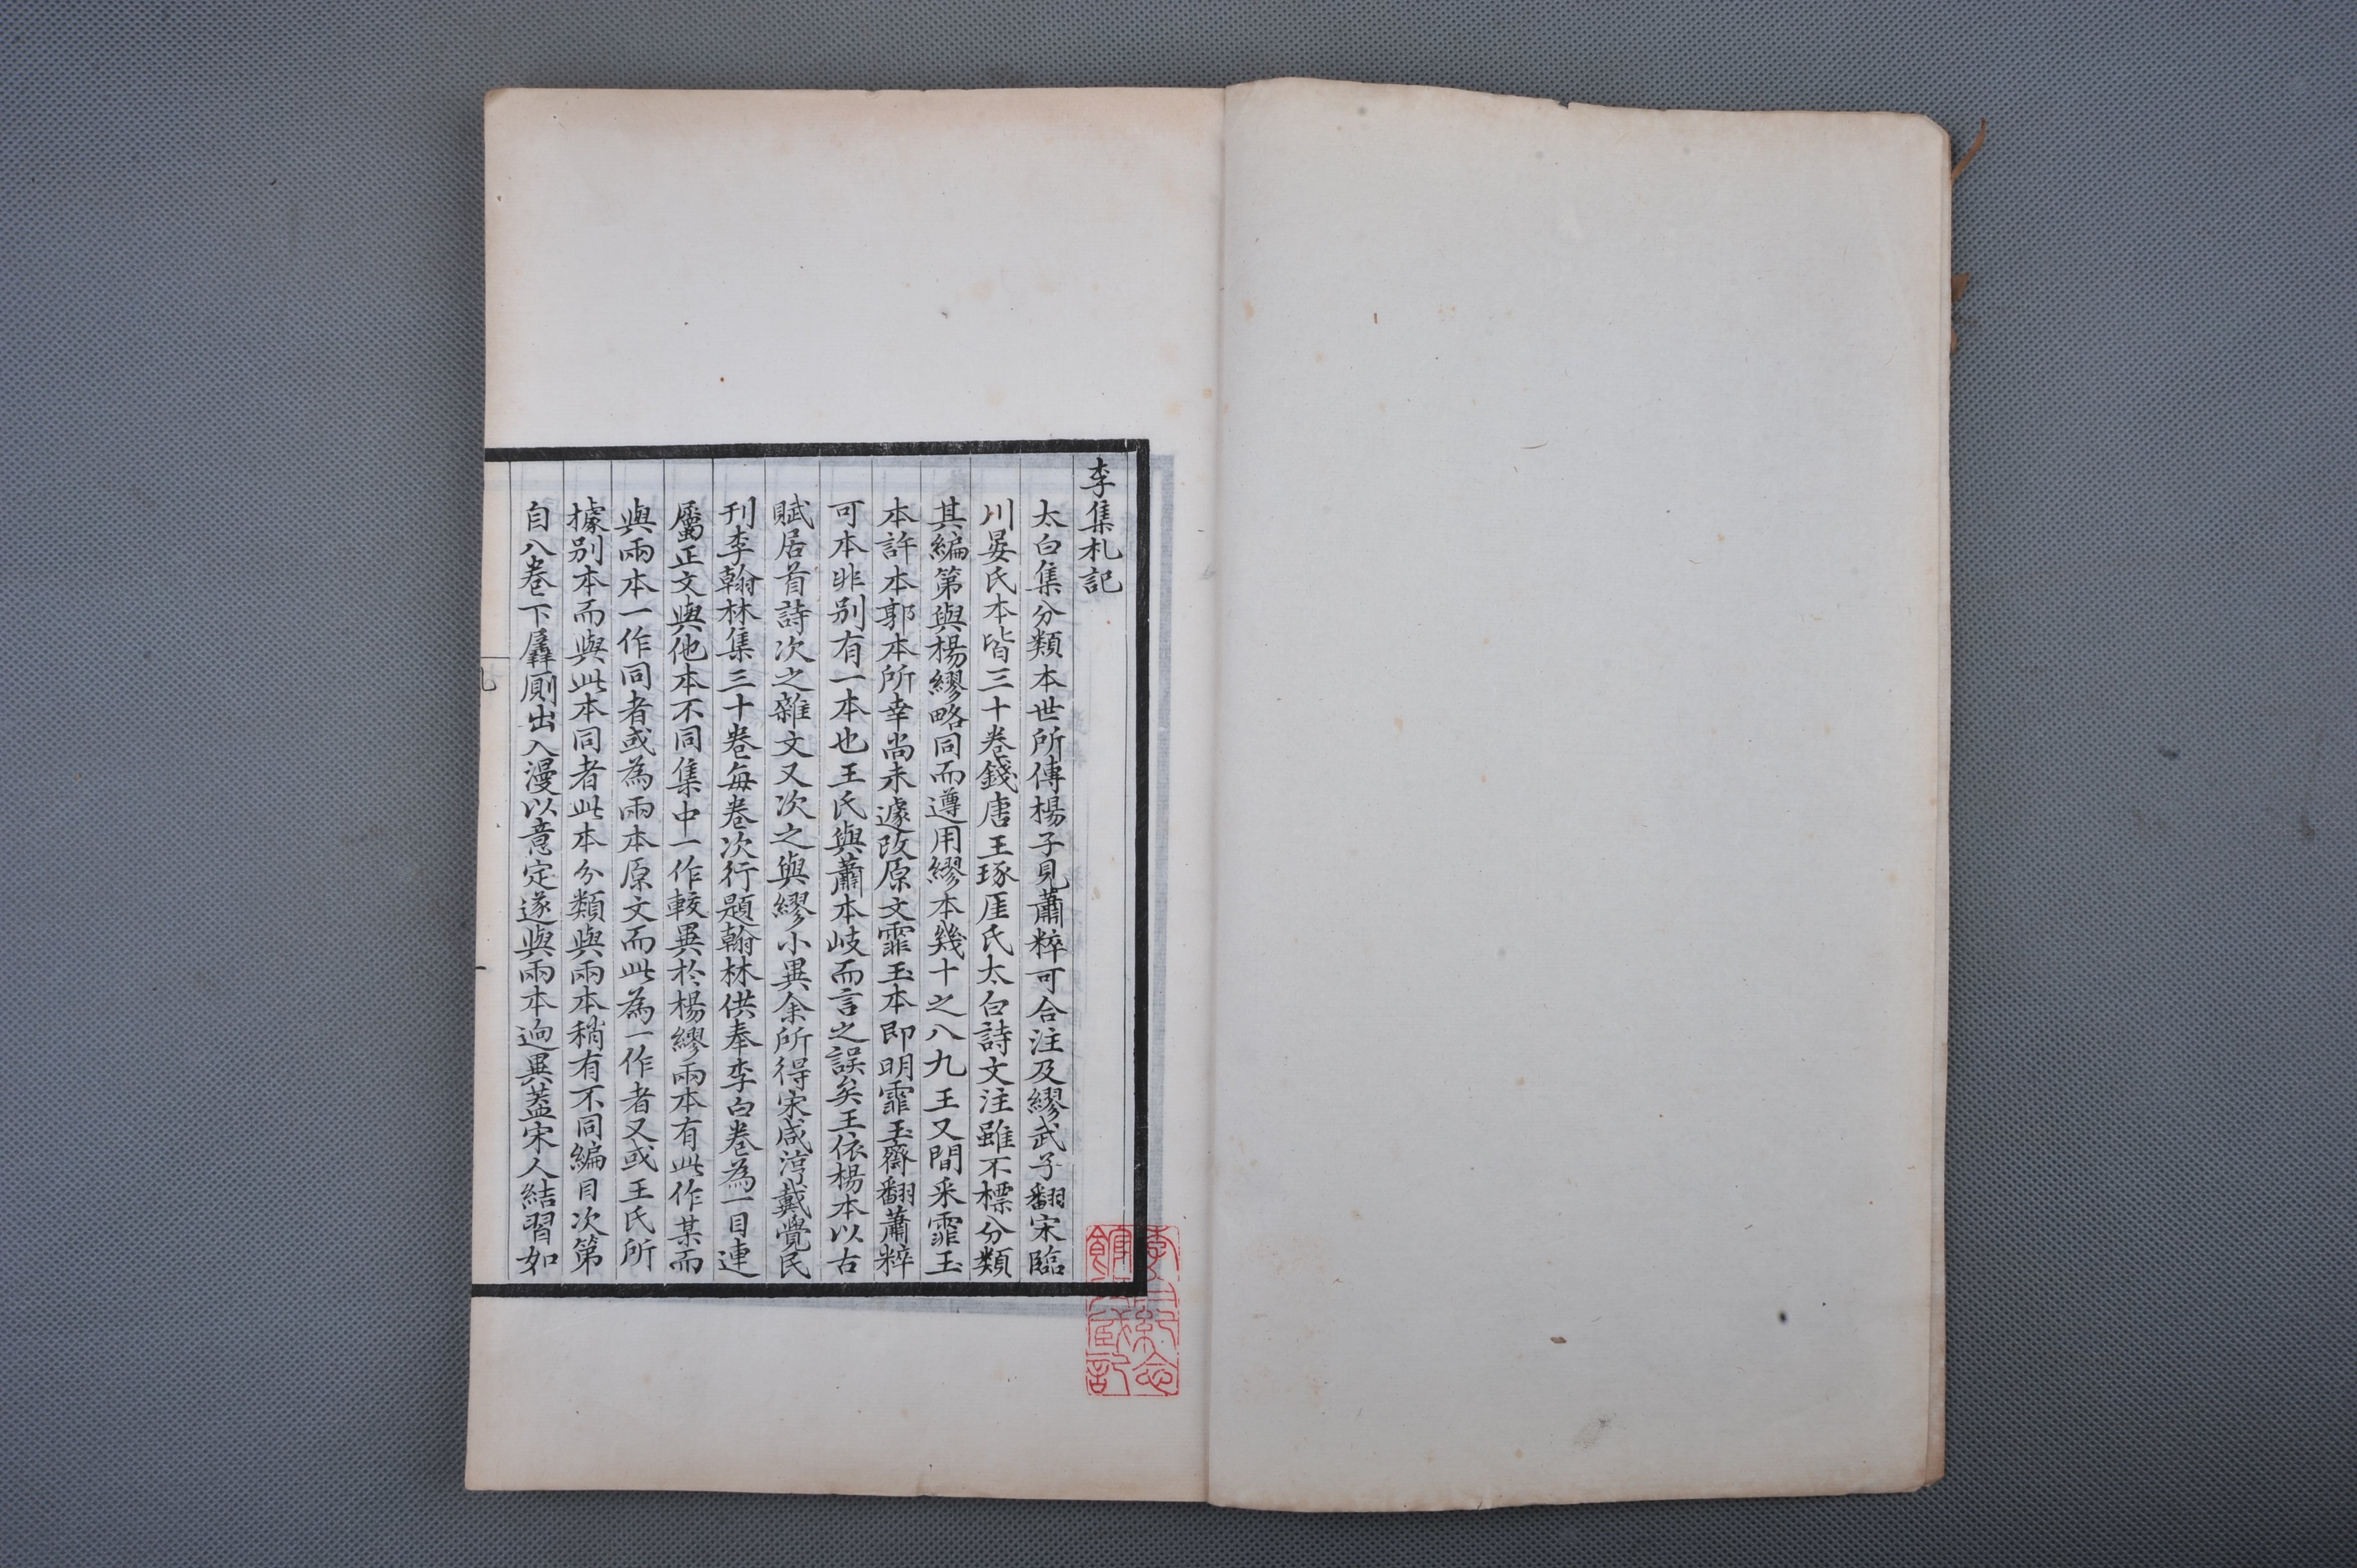 李集札記
太白集分類本世所傳楊子見蕭粹可合注及繆武子翻宋臨
川晏氏本皆三十卷錢唐王琢厓氏太白詩文注雖不標分類
其編第與楊繆略同而遵用繆本幾十之八九王又間采霏玉
本許本郭本所幸尚未遽改原文霏玉本即明霏玉齋翻蕭粹
可本非别有一本也王氏與蕭本岐而言之誤矣王依楊本以古
賦居首詩次之雜文又次之與繆小異余所得宋咸淳戴覺民
刊李翰林集三十卷每卷次行題翰林供奉李白卷為一目連
屬正文與他本不同集中一作較異於楊繆兩本有此作某而
與兩本一作同者或為兩本原文而此為一作者又或王氏所
據别本而與此本同者此本分類與兩本稍有不同編目次第
自八卷下羼厠出入漫以意定遂與兩本迥異蓋宋人結習如
李白紀念
館藏記